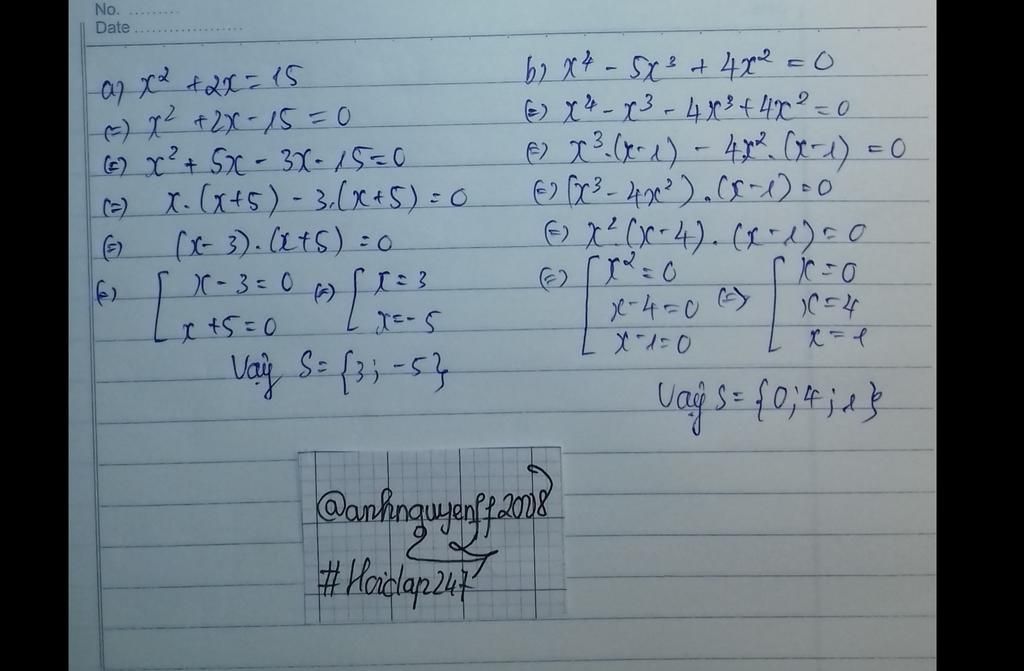 No. .........
Date ...................
a) x² + 2x = 15
(=) x² + 2x - 15 = 0
(=) x² + 5x - 3x - 15 = 0
(=) x.(x+5) - 3.(x+5) = 0
(=) (x-3).(x+5) = 0
(=) [ x-3=0 (=) [ x=3
x+5=0 x=-5
Vậy S= {3; -5}
b) x⁴ - 5x³ + 4x² = 0
(=) x⁴ - x³ - 4x³ + 4x² = 0
(=) x³.(x-1) - 4x².(x-1) = 0
(=) (x³ - 4x²).(x-1) = 0
(=) x².(x-4).(x-1) = 0
(=) [ x² = 0 (=) [ x=0
x-4=0 x=4
x-1=0 x=1
Vậy S= {0;4;1}
@anhnguyenff2008
#Hoidap247